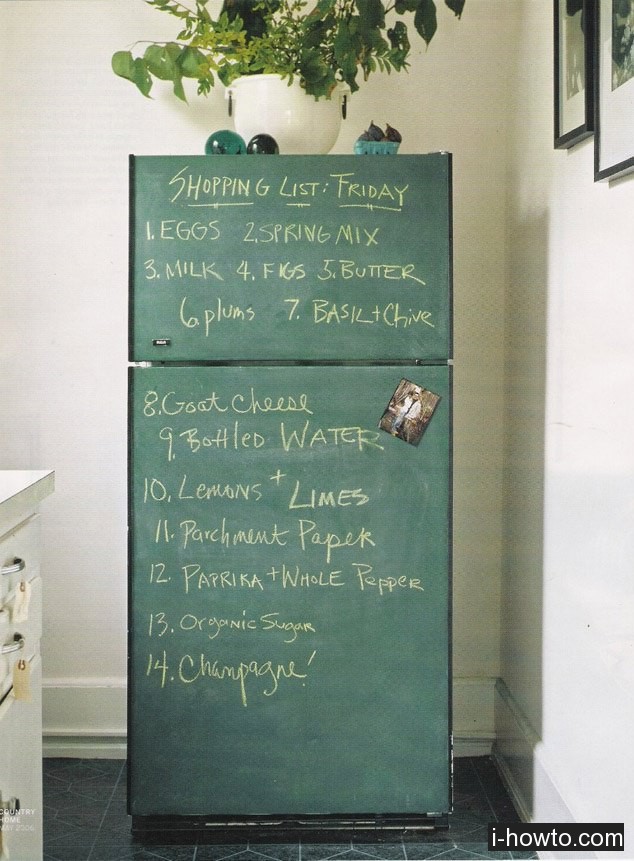 SHOPPING LIST: FRIDAY
1. EGGS 2. SPRING MIX
3. MILK 4. FIGS 5. BUTTER
6. plums 7. BASIL + Chive
8. Goat cheese
9. Bottled WATER
10. Lemons + LIMES
11. Parchment Paper
12. PAPRIKA + WHOLE Pepper
13. Organic Sugar
14. Champagne!
COUNTRY
HOME
MAY 2006
i-howto.com